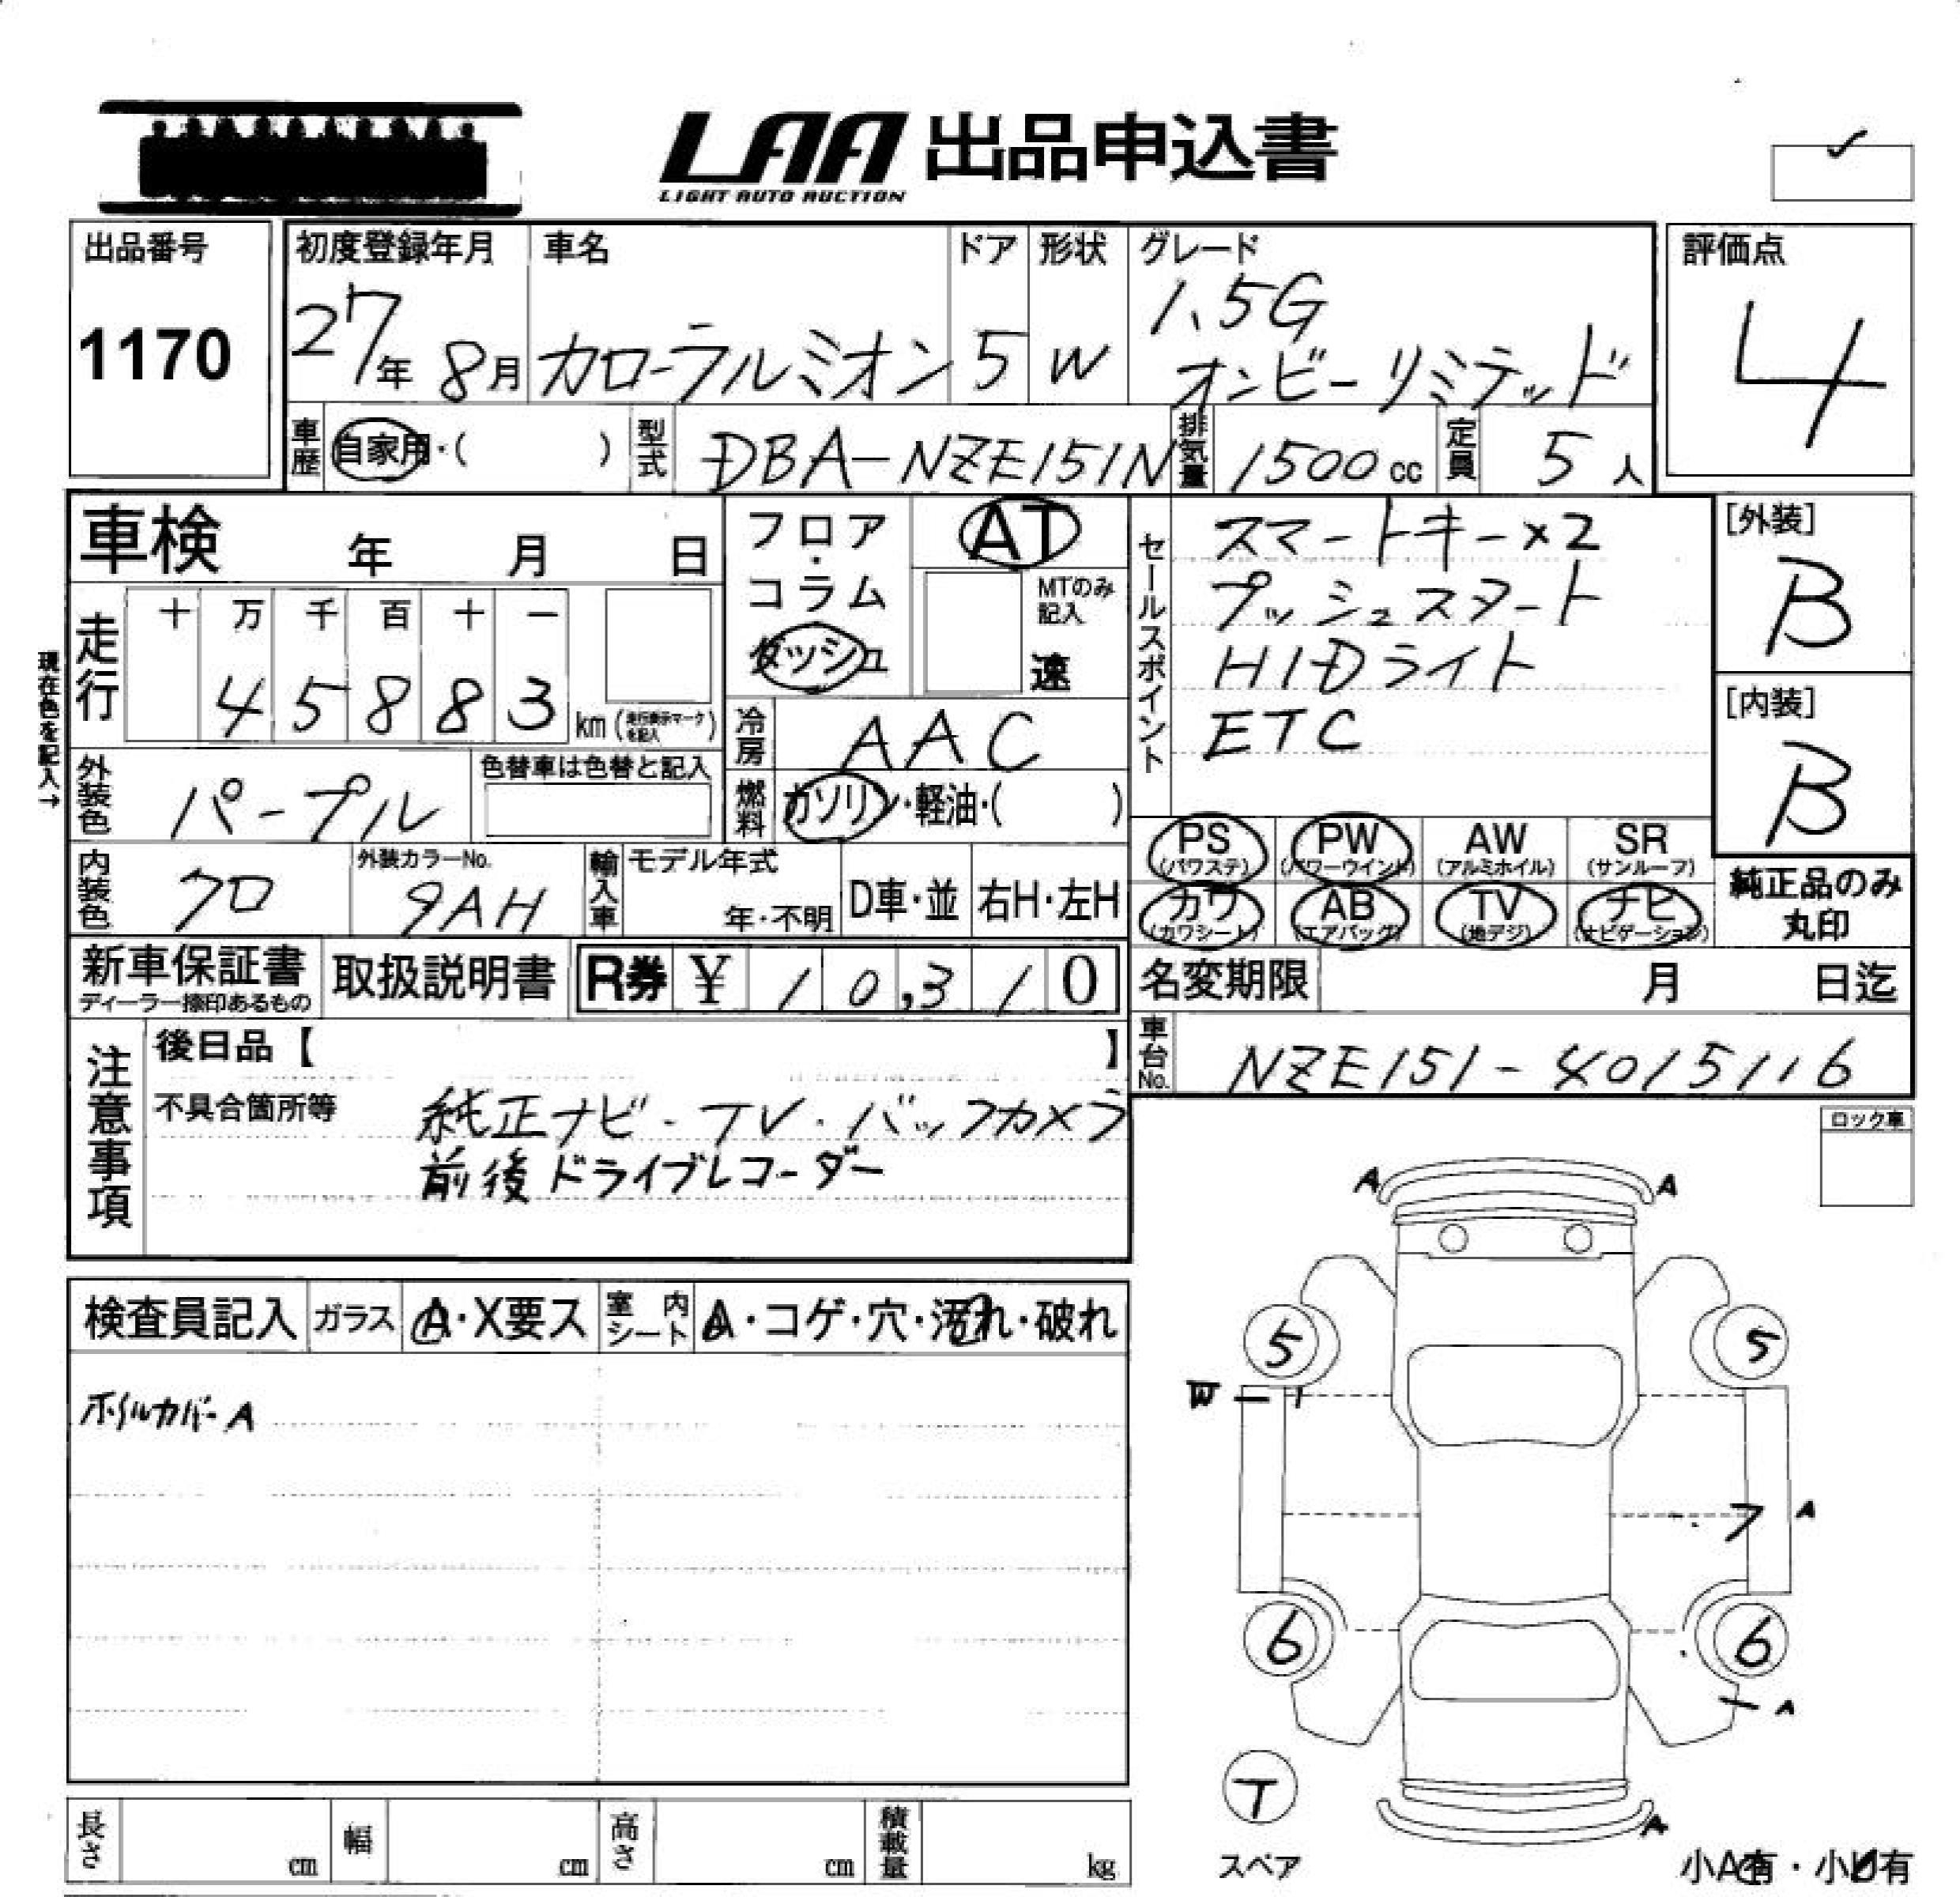 LAA 出品申込書
LIGHT AUTO AUCTION
出品番号 1170
初度登録年月 27年 8月
車名 カローラルミオン
ドア 5
形状 W
グレード 1.5G
オンビーリミテッド
評価点 4
車歴 自家用・( )
型式 DBA-NZE151N
排気量 1500 cc
定員 5人
車検 年 月 日
フロア・コラム ダッシュ
AT
MTのみ記入
速
走行 十 万 千 百 十 一
4 5 8 8 3 km (走行表示マークを記入)
現在色を記入→
冷房 AAC
外装色 パープル
色替車は色替と記入
燃料 ガソリン・軽油・( )
内装色 クロ
外装カラーNo. 9AH
輸入車 モデル年式
年・不明 D車・並 右H・左H
セールスポイント
スマートキー×2
プッシュスタート
HIDライト
ETC
[外装] B
[内装] B
PS (パワステ) PW (パワーウインド) AW (アルミホイル) SR (サンルーフ)
カワ (カワシート) AB (エアバッグ) TV (地デジ) ナビ (ナビゲーション)
純正品のみ
丸印
新車保証書 ディーラー捺印あるもの
取扱説明書
R券 ¥ 10,310
名変期限 月 日迄
車台No. NZE151-4015116
注意事項
後日品【 】
不具合箇所等 純正ナビ・TV・バックカメラ
前後ドライブレコーダー
ロック車
検査員記入 ガラス A・X要ス 室内シート A・コゲ・穴・汚れ・破れ
ホイルカバーA
A A
5 5
W
7 A
6 6
A
T
スペア
A
小A有・小U有
長さ cm 幅 cm 高さ cm 積載量 kg